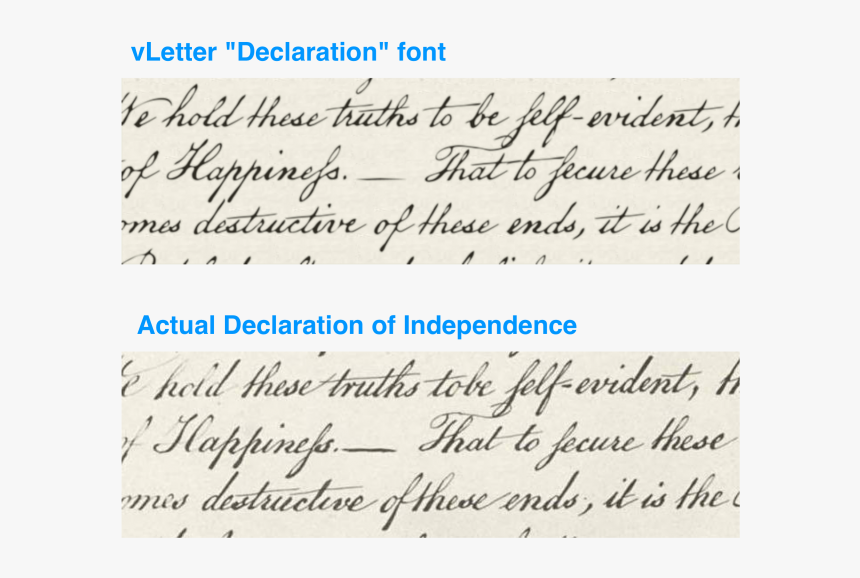 vLetter "Declaration" font
We hold these truths to be ſelf-evident, th
of Happineſs. — That to ſecure these
omes destructive of these ends, it is the
Actual Declaration of Independence
hold these truths to be ſelf-evident, th
of Happineſs. — That to ſecure these
omes destructive of these ends, it is the